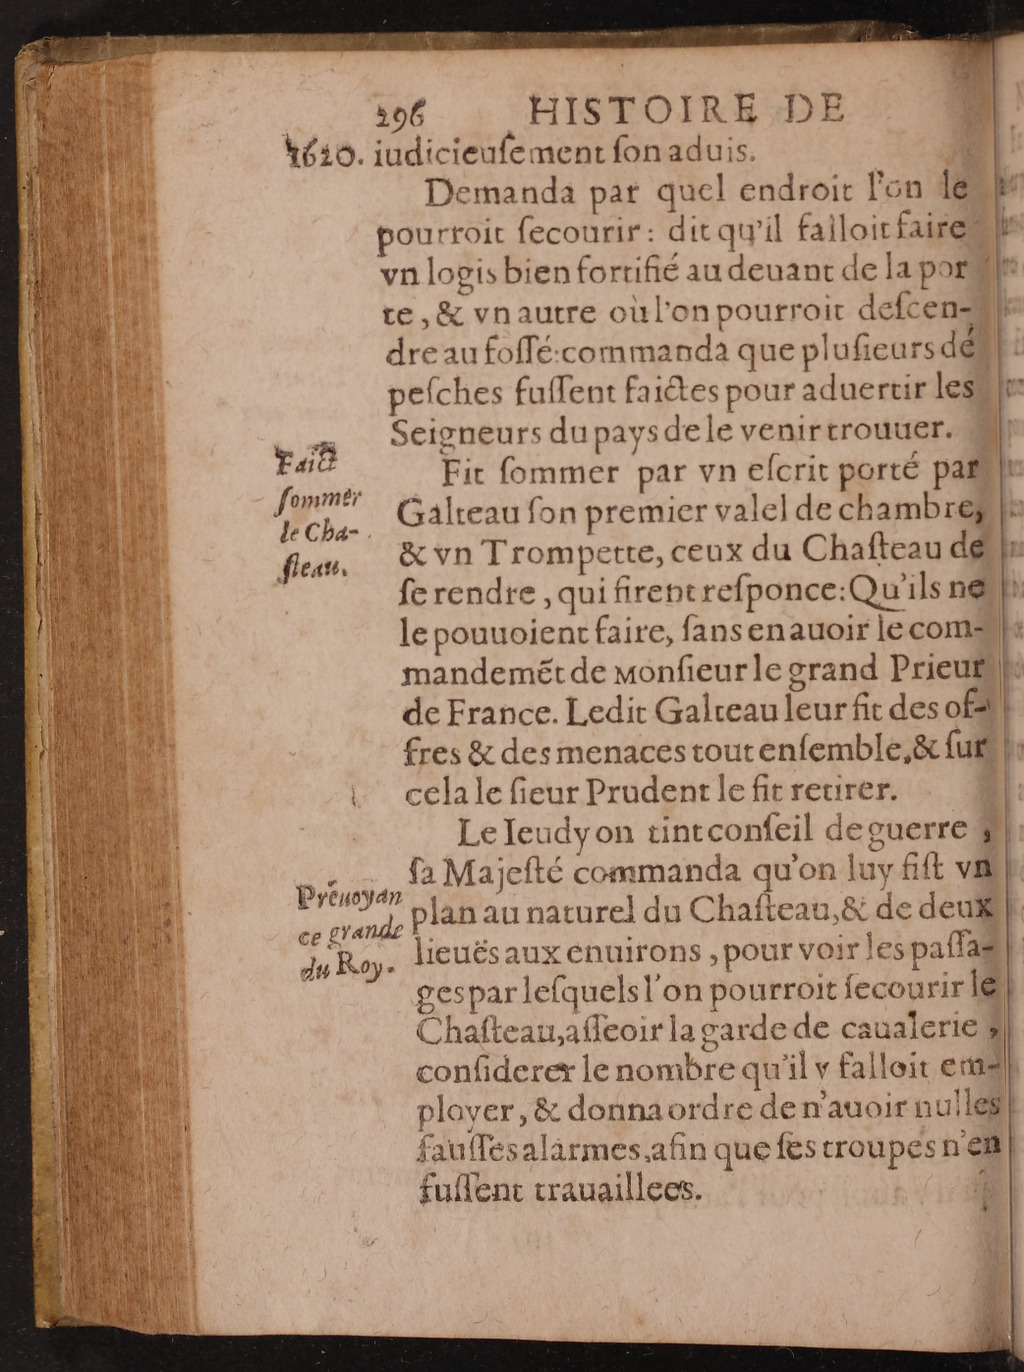 296 HISTOIRE DE
1620. iudicieuſement ſon aduis.
Demanda par quel endroit l'on le
pourroit ſecourir : dit qu'il falloit faire
vn logis bien fortifié au deuant de la por
te, & vn autre où l'on pourroit deſcen-
dre au foſſé: commanda que pluſieurs dé
peſches fuſſent faictes pour aduertir les
Seigneurs du pays de le venir trouuer.
Faict
ſommer
le Cha-
ſteau.
Fit ſommer par vn eſcrit porté par
Galteau ſon premier valel de chambre,
& vn Trompette, ceux du Chaſteau de
ſe rendre, qui firent reſponce: Qu'ils ne
le pouuoient faire, ſans en auoir le com-
mandemẽt de Monſieur le grand Prieur
de France. Ledit Galteau leur fit des of-
fres & des menaces tout enſemble, & ſur
cela le ſieur Prudent le fit retirer.
Le Ieudy on tint conſeil de guerre,
ſa Majeſté commanda qu'on luy fiſt vn
Preuoyan
ce grande
du Roy.
plan au naturel du Chaſteau, & de deux
lieuës aux enuirons, pour voir les paſſa-
ges par leſquels l'on pourroit ſecourir le
Chaſteau, aſſeoir la garde de caualerie,
conſiderer le nombre qu'il y falloit em-
ployer, & donna ordre de n'auoir nulles
fauſſes alarmes, afin que ſes troupes n'en
fuſſent trauaillees.